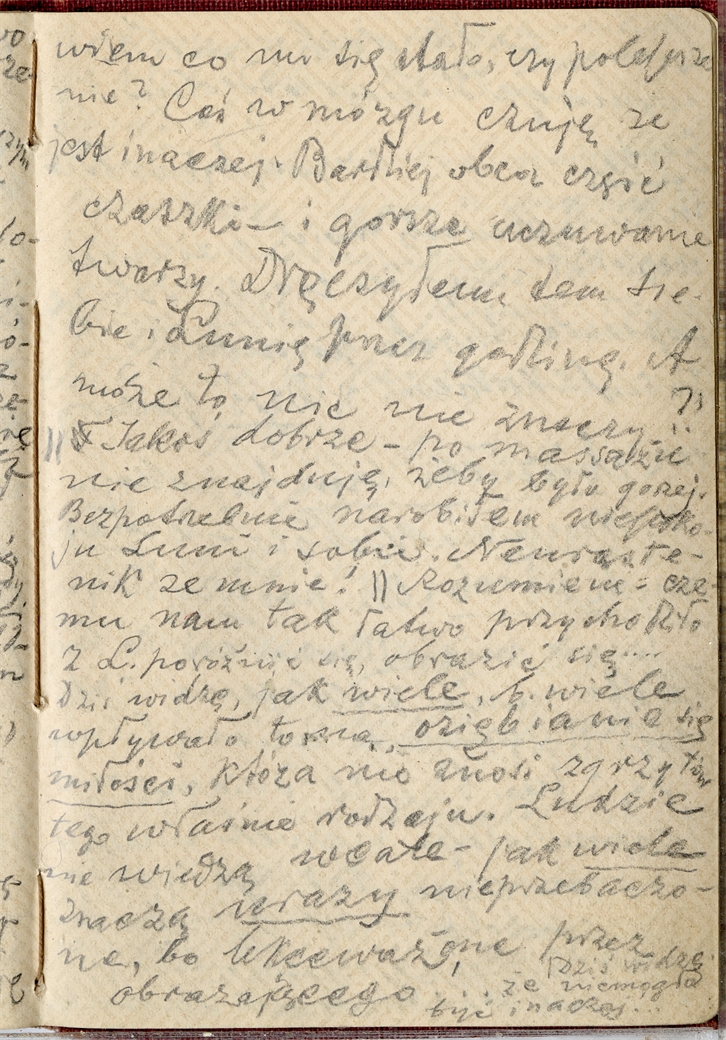 wiem co mi się stało, czy polepsze
nie? Coś w mózgu czuję że
jest inaczej. Bardziej obca część
czaszki – i gorsze uczuwanie
twarzy. Dręczyłem tem sie-
bie i Lunię przez godzinę. A
może to nic nie znaczy ?!
|| Jakoś dobrze – po massażu
nie znajduję, żeby było gorzej.
Bezpotrzebnie narobiłem niepoko-
ju Luni i sobie. Neuraste-
nik ze mnie! || Rozumiem – cze-
mu nam tak łatwo przychodziło
z L. poróżnić się, obrazić się....
Dziś widzę, jak wiele, b. wiele
wpływało to na oziębianie się
miłości, która nie znosi zgrzytów
tego właśnie rodzaju. Ludzie
nie wiedzą wcale – jak wiele
znaczą urazy nieprzebaczo-
ne, bo lekceważone przez
obrażającego
Dziś widzę
że niemogło
być inaczej...